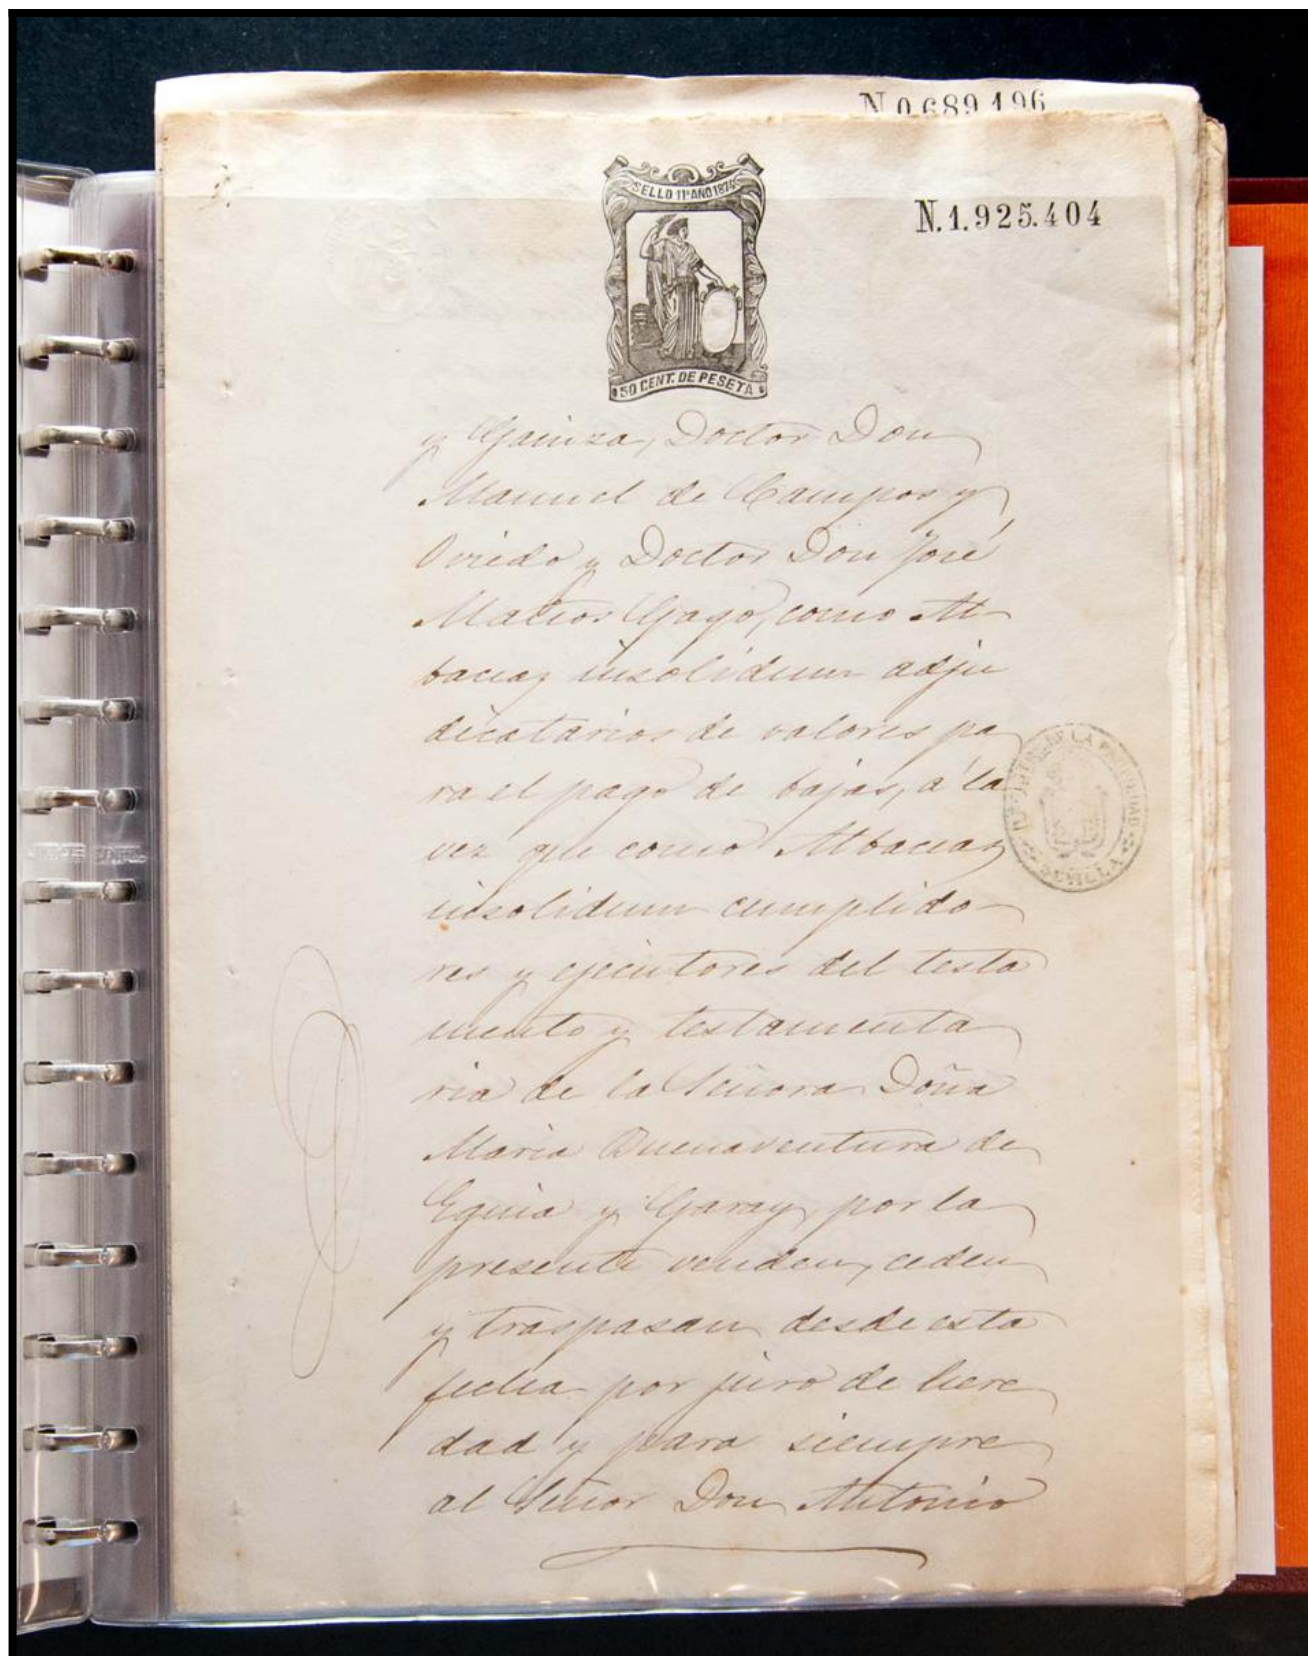 N.0.689.196
SELLO 11º AÑO 187
N.1.925.404
50 CENT. DE PESETA
y Gainza, Doctor Don
Manuel de Campos y
Oviedo y Doctor Don José
Mateos Gago, como Al-
baceas insolidum adju
dicatarios de valores pa
ra el pago de bajas, á la
vez que como Albaceas
insolidum cumplido-
res y ejecutores del testa
mento y testamenta
ria de la Señora Doña
Maria Buenaventura de
Eguia y Garay, por la
presente venden, ceden
y traspasan desde esta
fecha por juro de here
dad y para siempre
al Señor Don Antonio
REGISTRO DE LA PROPIEDAD
SEVILLA